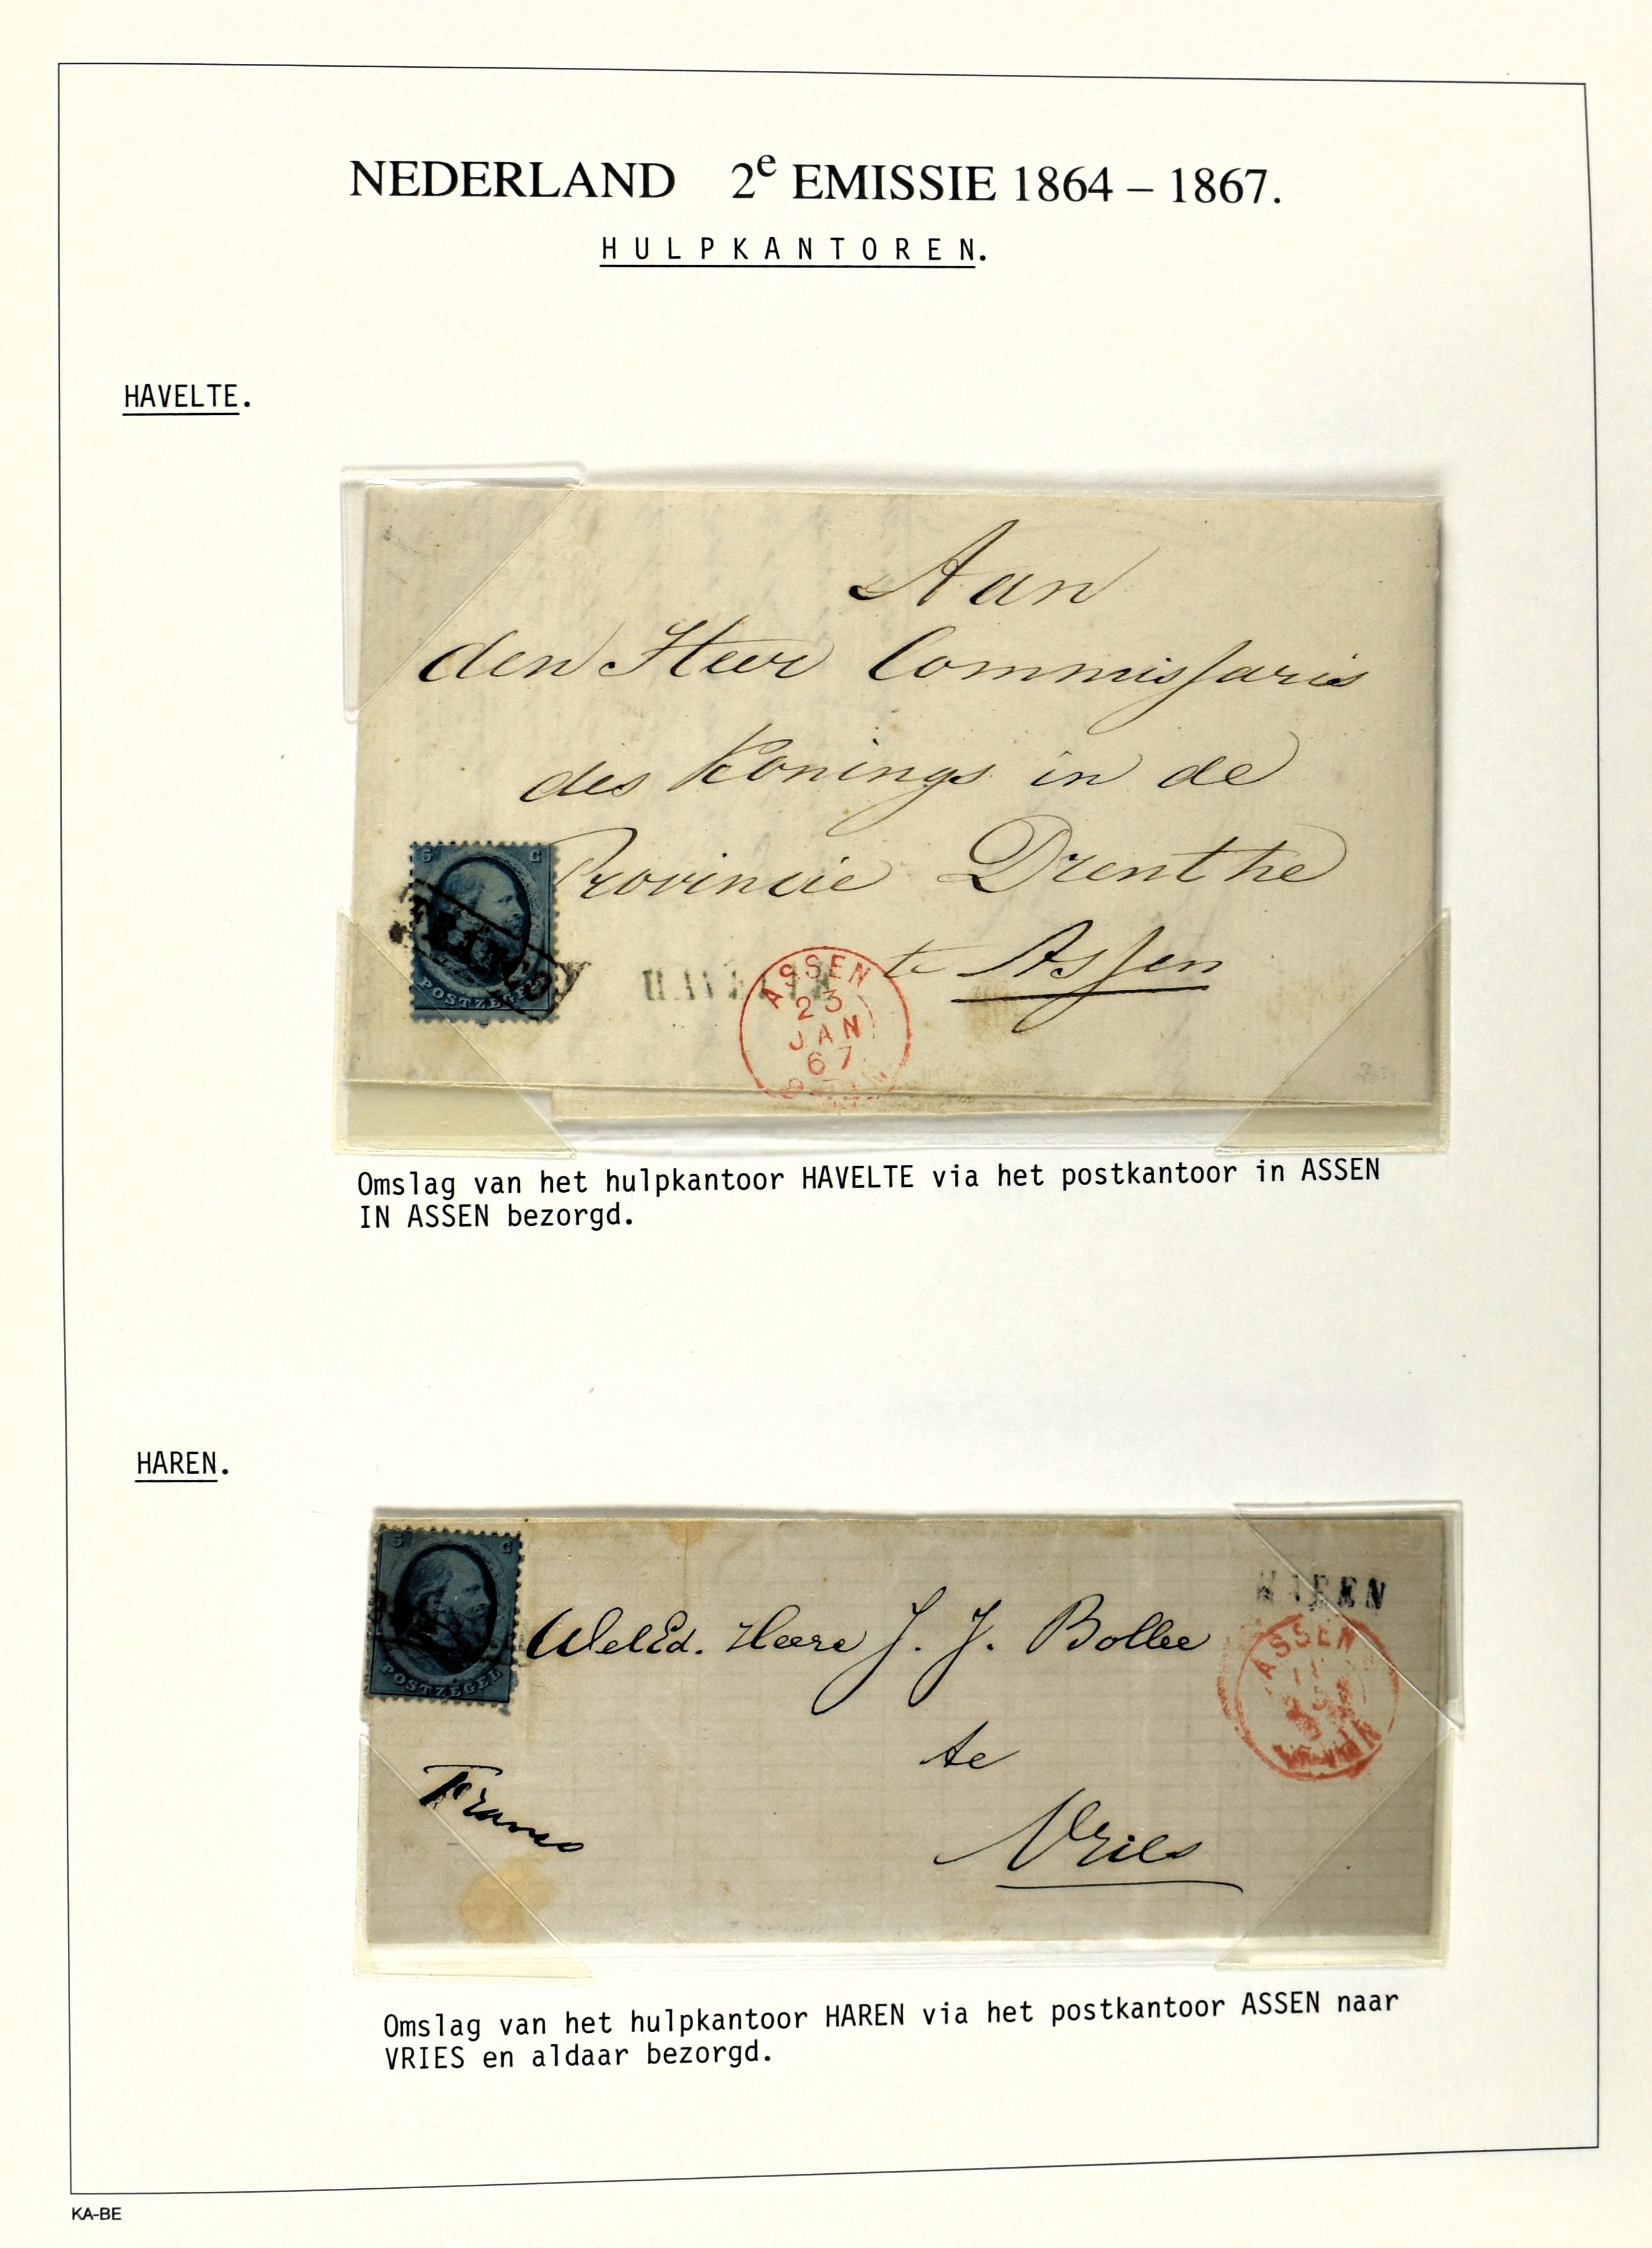 NEDERLAND 2e EMISSIE 1864 – 1867.
HULPKANTOREN.
HAVELTE.
Aan
den Heer Commissaris
des Konings in de
Provincie Drenthe
te Assen
5 C
FRANCO
POSTZEGEL
HAVELTE
ASSEN
23
JAN
67
Omslag van het hulpkantoor HAVELTE via het postkantoor in ASSEN
IN ASSEN bezorgd.
HAREN.
5 C
POSTZEGEL
HAREN
ASSEN
WelEd. Heere J. J. Bollee
te
Vries
Franco
Omslag van het hulpkantoor HAREN via het postkantoor ASSEN naar
VRIES en aldaar bezorgd.
KA-BE